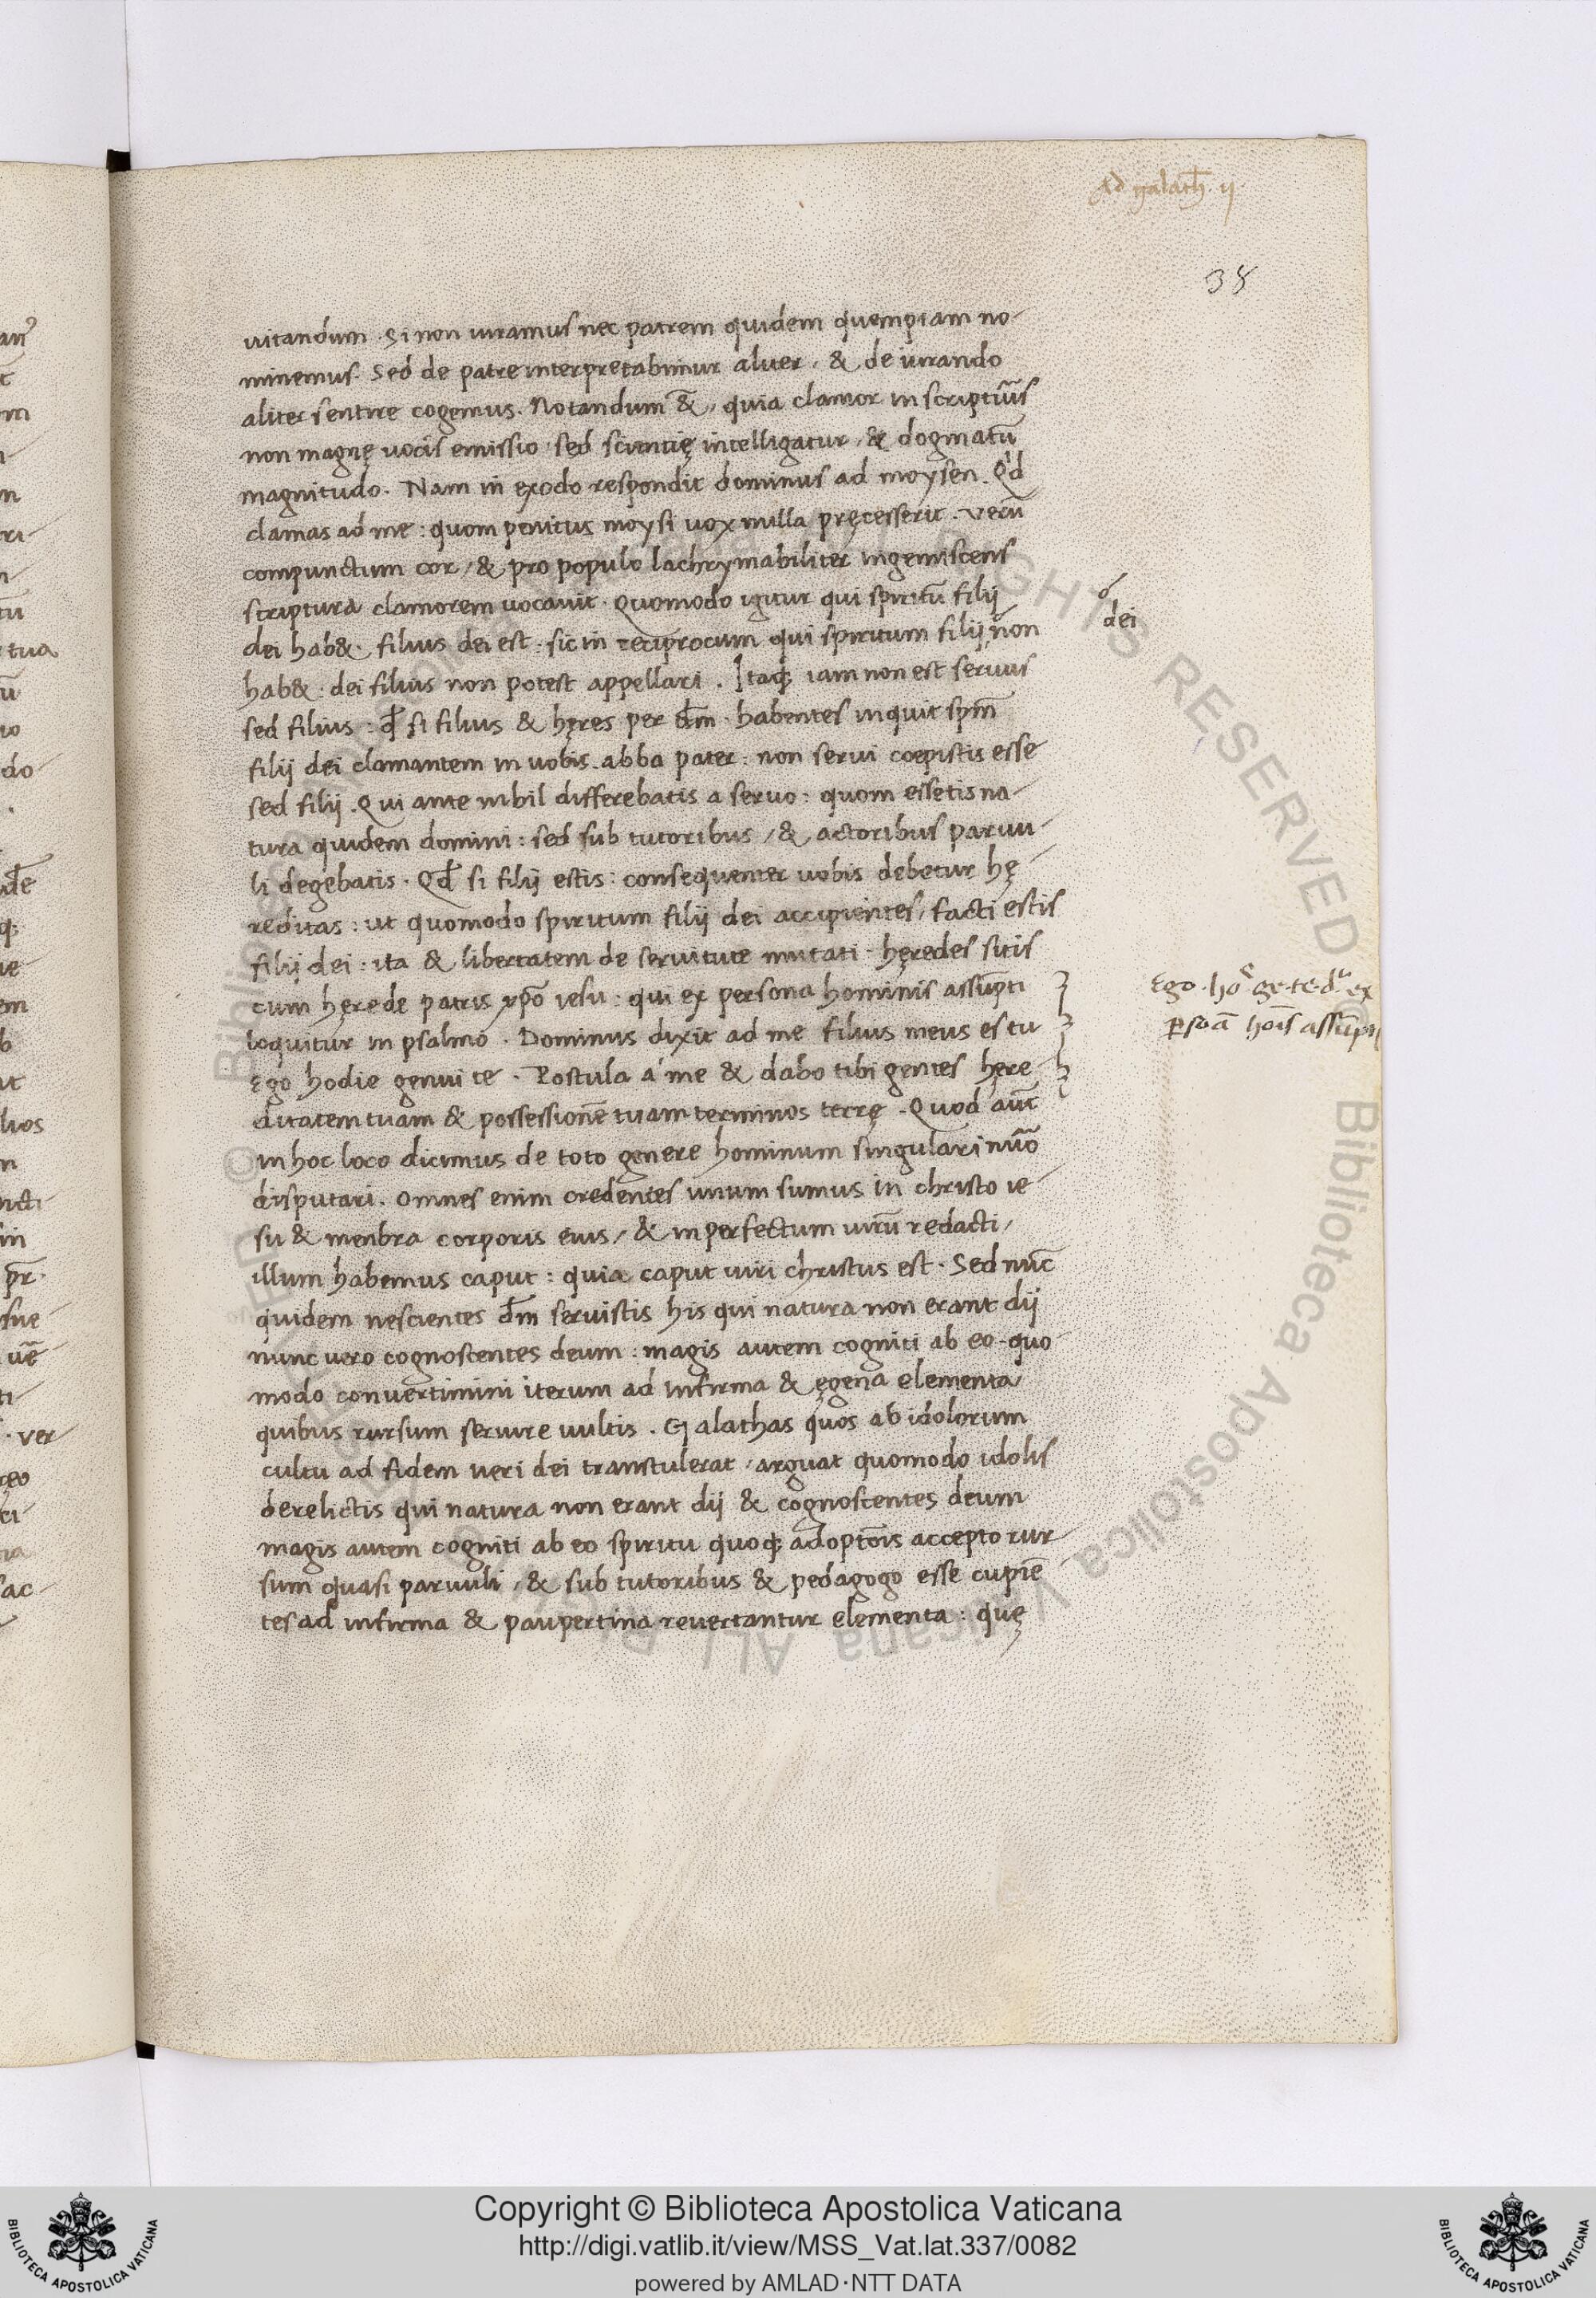 Ad galath̄ ij
38
uitandum. Si non iuramus nec patrem quidem quempiam no-
minemus. Sed de patre interpretabimur aliter, & de iurando
aliter sentire cogemus. Notandum &̄, quia clamor in scriptur̄is
non magnę uocis emissio, sed scientię intelligatur, & dogmatū
magnitudo. Nam in exodo respondit dominus ad moysen. Qd
clamas ad me: quom penitus moysi uox nulla pręcesserit. Verū
compunctum cor, & pro populo lachrymabiliter ingemiscens
scriptura clamorem uocauit. Quomodo igitur qui spiritū filij
dei hab&. filius dei est: sic in reciprocum qui spiritum filij non
dei
hab&: dei filius non potest appellari. Itaq; iam non est seruus
sed filius: qd̄ si filius & hęres per dm̄. habentes inquit spm̄
filij dei clamantem in uobis. abba pater: non serui coepistis esse
sed filij. Qui ante nihil differebatis a seruo: quom essetis na-
tura quidem domini: sed sub tutoribus, & actoribus paruu-
li degebatis. Qd̄ si filij estis: consequenter uobis debetur hę-
reditas: ut quomodo spiritum filij dei accipientes, facti estis
filij dei: ita & libertatem de seruitute mutati. hęredes sitis
cum hęrede patris xp̄o iesu: qui ex persona hominis assūpti
loquitur in psalmo. Dominus dixit ad me filius meus es tu
Ego hodie genui te. Postula a me & dabo tibi gentes hęre-
ditatem tuam & possessionē tuam terminos terrę. Quod aūt
in hoc loco dicimus de toto genere hominum singulari nūo
disputari. Omnes enim credentes unum sumus in christo ie-
su & menbra corporis eius, & in perfectum uirū redacti,
illum habemus caput: quia caput uiri christus est. Sed nūc
quidem nescientes dm̄ seruistis his qui natura non erant dij
nunc uero cognoscentes deum: magis autem cogniti ab eo. quo-
modo conuertimini iterum ad infirma & ęgena elementa
quibus rursum seruire uultis. Galathas quos ab idolorum
cultu ad fidem ueri dei transtulerat, arguat quomodo idolis
derelictis qui natura non erant dij & cognoscentes deum
magis autem cogniti ab eo spiritu quoq; adoptōis accepto rur-
sum quasi paruuli, & sub tutoribus & pedagogo esse cupiē-
tes ad infirma & paupertina reuertantur elementa: quę
Ego. ho. ge. te. dr ex
psōa hoīs assūpti
Copyright © Biblioteca Apostolica Vaticana
http://digi.vatlib.it/view/MSS_Vat.lat.337/0082
powered by AMLAD·NTT DATA
BIBLIOTECA APOSTOLICA VATICANA
BIBLIOTECA APOSTOLICA VATICANA